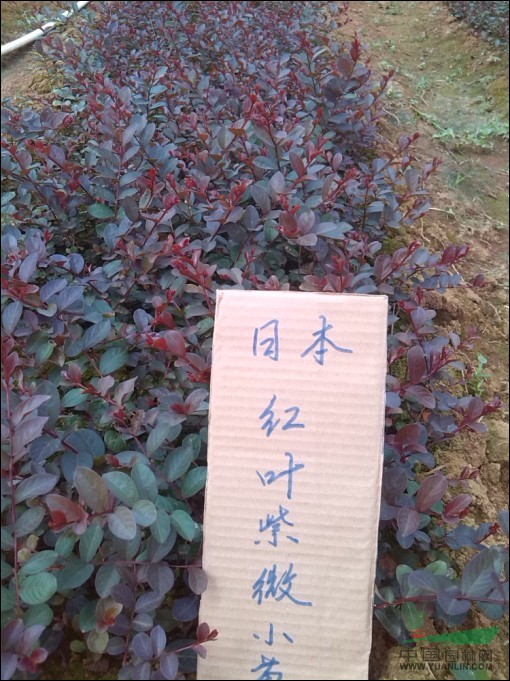 日本
红叶紫微小苗
中国园林网
WWW.YUANLIN.COM